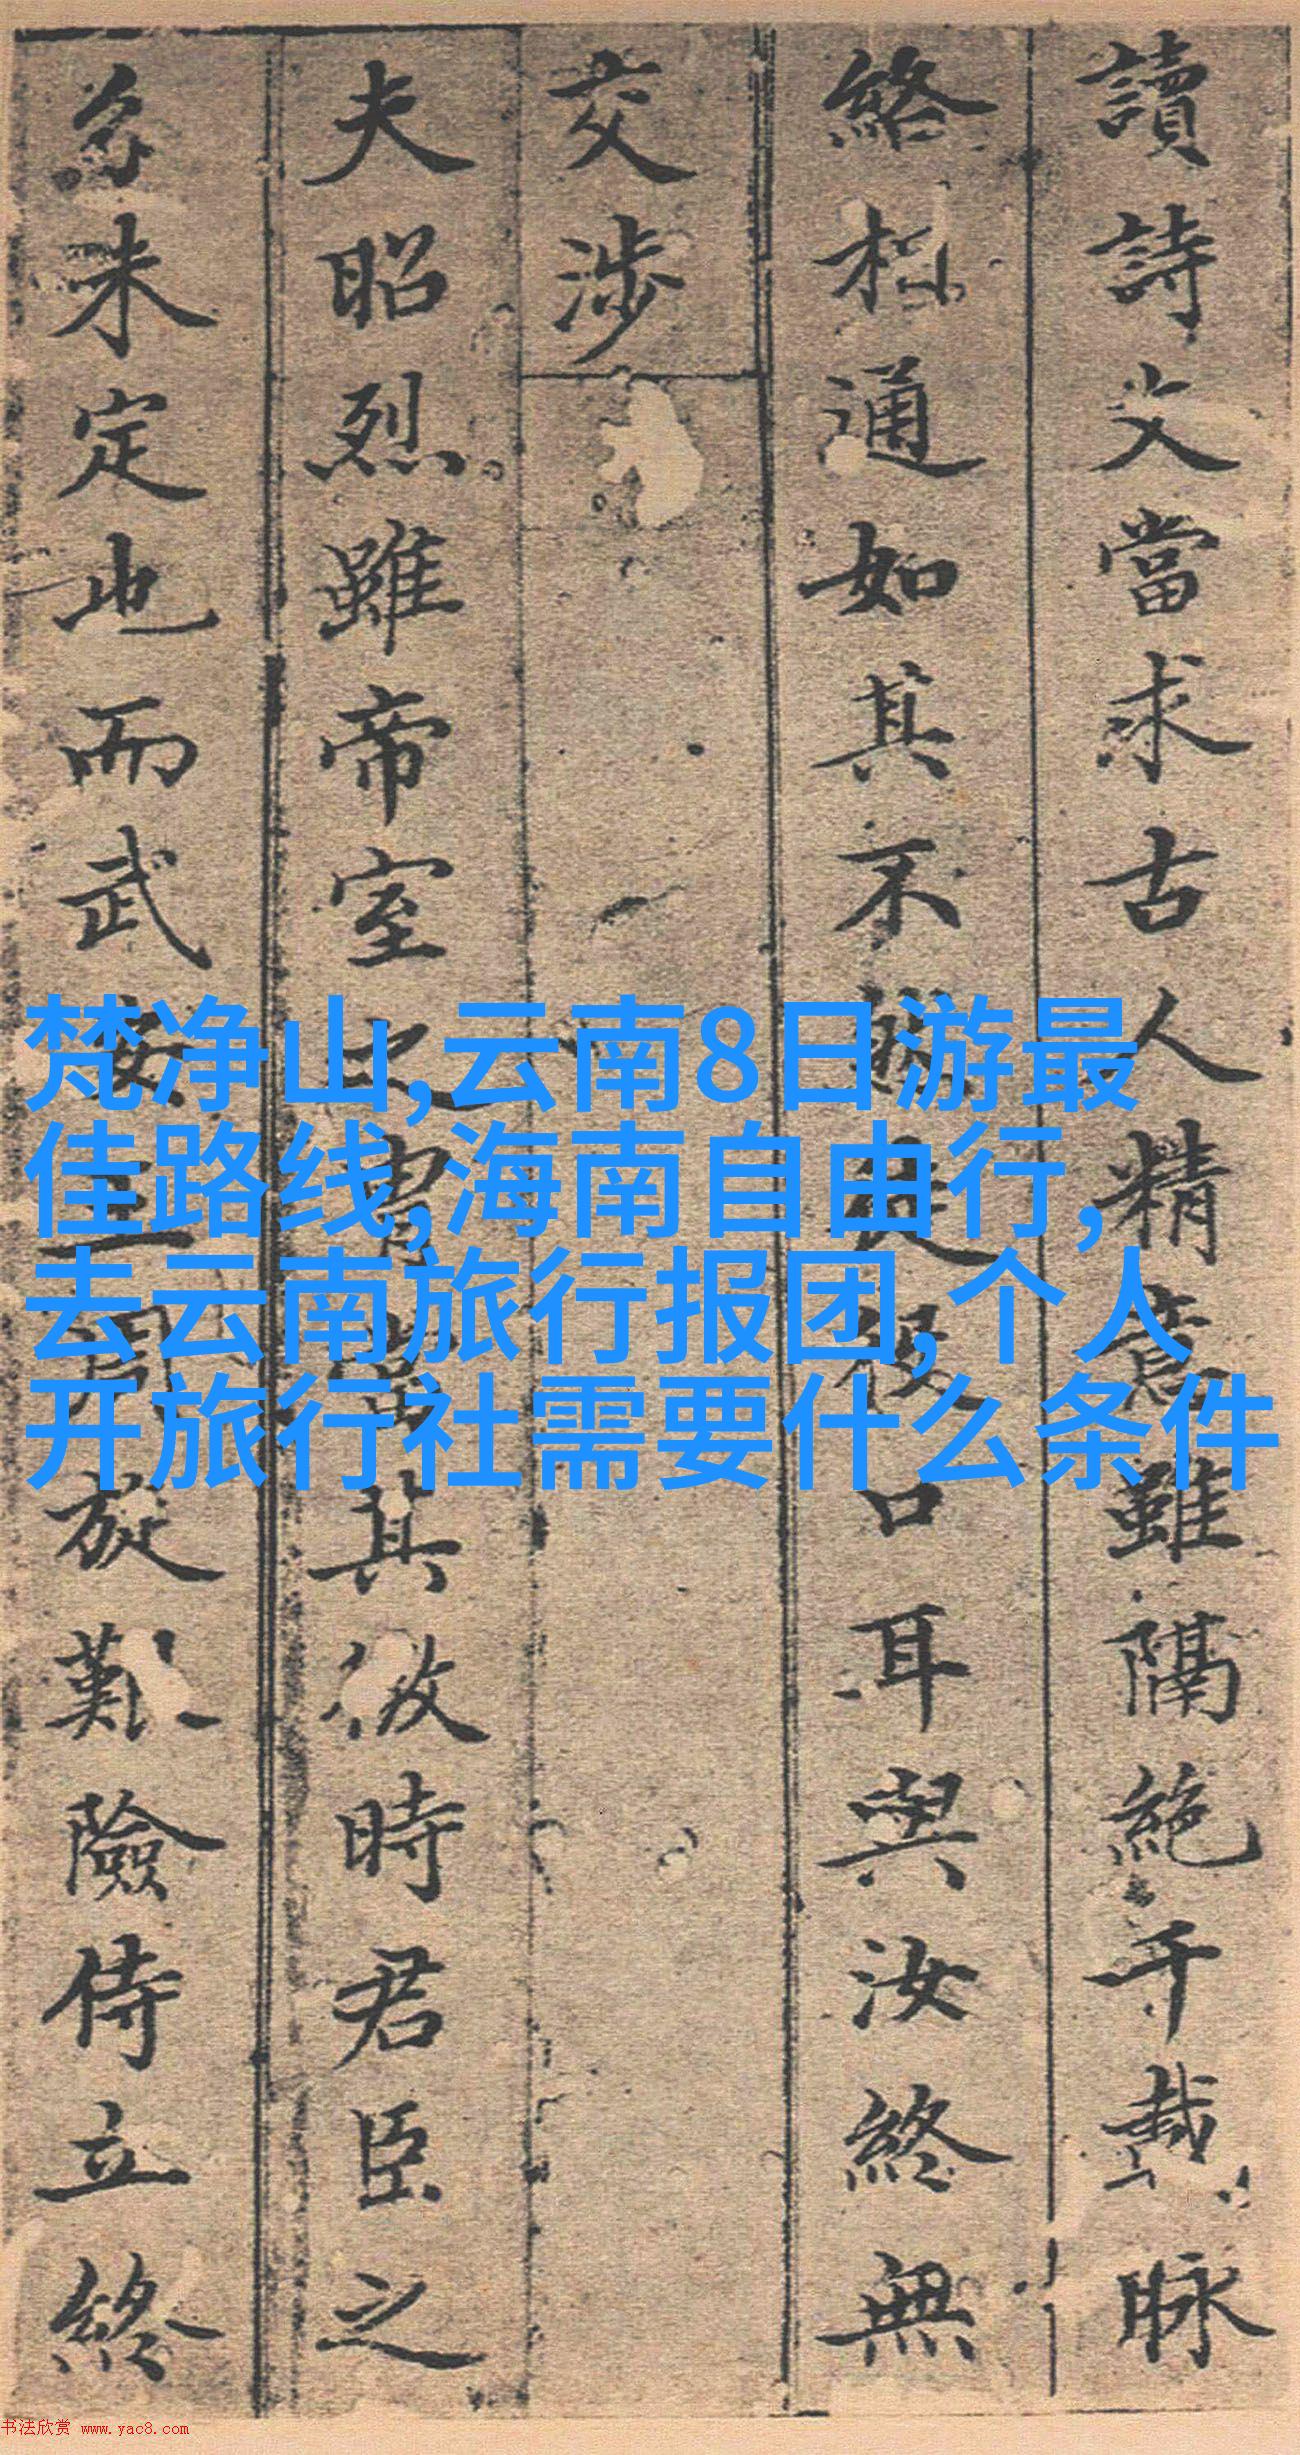 讀詩文當求古人精意雖隔絶千載脉
絡相通如其不然徒役口耳與汝終無
交涉
夫昭烈雖帝室之胄當其微時君臣之
分未定也而武安王周旋艱險侍立終
梵净山,云南8日游最
佳路线,海南自由行,
去云南旅行报团,个人
开旅行社需要什么条件
书法欣赏 www.yac8.com